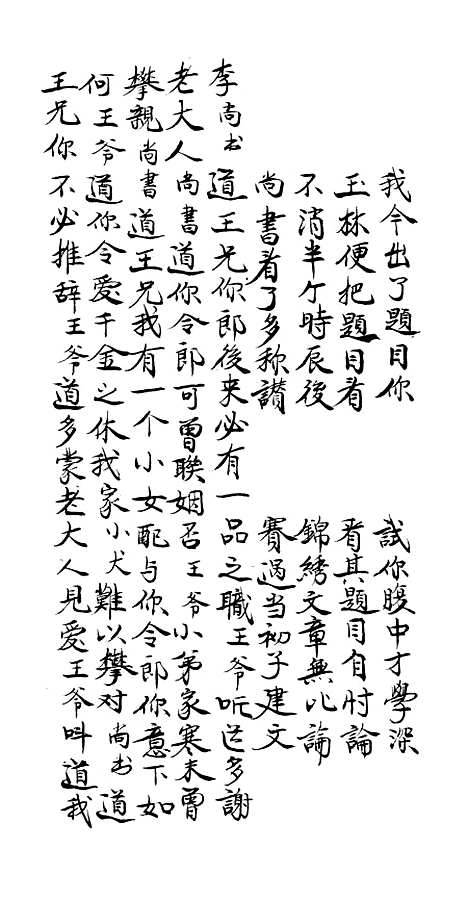 我今出了題目你　試你腹中才學深
玉林便把題目看　看其題目自忖論
不消半个時辰後　錦綉文章無比論
尚書看了多称讃　賽過当初子建文
李尚书道王兄你郎後来必有一品之職王爷听道多謝
老大人尚書道你令郎可曽聨姻否王爷小弟家寒未曽
攀親尚書道王兄我有一个小女配与你令郎你意下如
何王爷道你令愛千金之体我家小犬難以攀对尚书道
王兄你不必推辞王爷道多蒙老大人見爱王爷叫道我